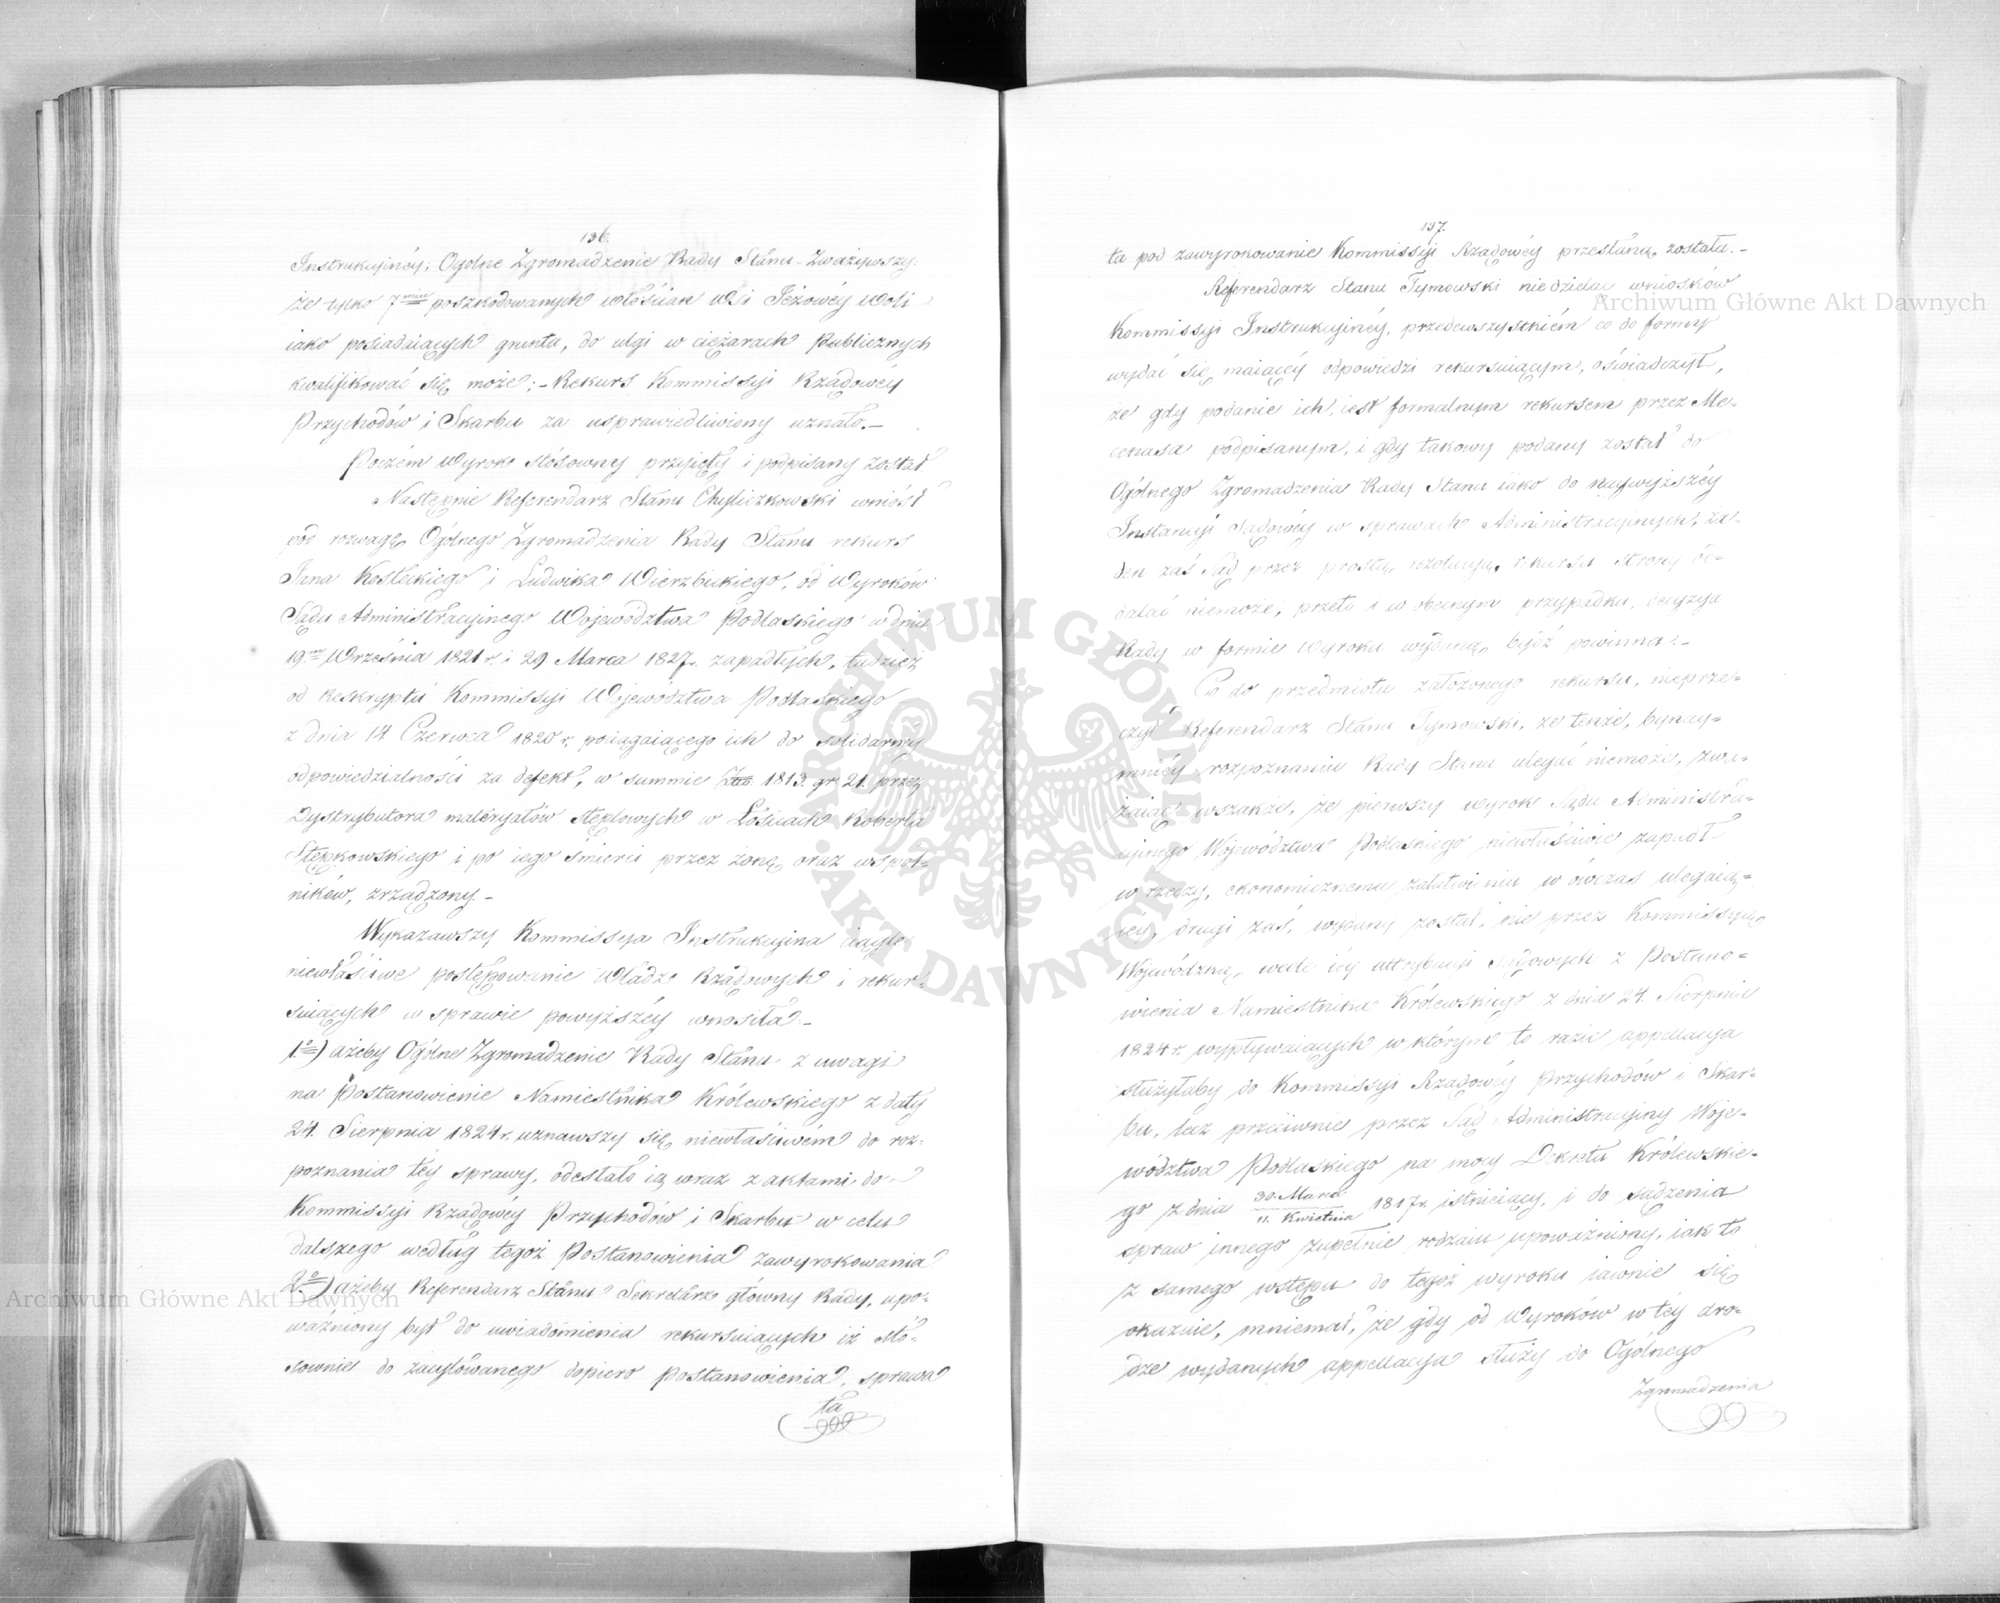 136.
Instrukcyinéy; Ogólne Zgromadzenie Rady Stanu zważywszy,
że tylko 7miu poszkodowanych włościan wsi Jeżowéy Woli
iako posiadaiących grunta, do ulgi w ciężarach Publicznych
kwalifikować się może; - Rekurs Kommissyi Rządowéy
Przychodów i Skarbu za usprawiedliwiony uznało. -
Poczém Wyrok stósowny przyięty i podpisany został
Następnie Referendarz Stanu Chyliczkowski wniósł
pod rozwagę Ogólnego Zgromadzenia Rady Stanu rekurs
Jana Kosteckiego i Ludwika Wierzbickiego, od Wyroków
Sądu Administracyjnego Województwa Podlaskiego w dniu
19m Września 1821 r. i 29 Marca 1827 r. zapadłych, tudzież
od Reskryptu Kommissyi Województwa Podlaskiego
z dnia 14 Czerwca 1820 r. pociągaiącego ich do solidarnéy
odpowiedzialności za defekt, w summie Złp. 1813. gr. 21. przez
Dystrybutora materyałów stęplowych w Łosicach Roberta
Stępkowskiego i po iego śmierci przez żonę oraz wspól-
ników, zrządzony. -
Wykazawszy Kommissya Instrukcyina ciągłe
niewłaściwe postępowanie Władz Rządowych i rekur-
suiących w sprawie powyższéy wnosiła. -
1o) ażeby Ogólne Zgromadzenie Rady Stanu z uwagi
na Postanowienie Namiestnika Królewskiego z daty
24. Sierpnia 1824 r. uznawszy się niewłaściwém do roz-
poznania téy sprawy, odesłało ią wraz z aktami do
Kommissyi Rządowéy Przychodów i Skarbu w celu
dalszego według tegoż Postanowienia zawyrokowania
2o) ażeby Referendarz Stanu Sekretarz główny Rady, upo-
ważniony był do uwiadomienia rekursuiących iż stó-
sownie do zacytowanego dopiero Postanowienia, sprawa
ta
137.
ta pod zawyrokowanie Kommissyi Rządowéy przesłaną została. -
Referendarz Stanu Tymowski niedzieląc wniosków
Kommissyi Instrukcyinéy, przedewszystkiém co do formy
wydać się maiącéy odpowiedzi rekursuiącym, oświadczył,
że gdy podanie ich, iest formalnym rekursem przez Me-
cenasa podpisanym, i gdy takowy podany został do
Ogólnego Zgromadzenia Rady Stanu iako do naywyższéy
Instancyi Sądowéy w sprawach Administracyinych, ża-
den zaś Sąd przez prostą rezolucyą rekursu strony od-
dalać niemoże, przeto i w obecnym przypadku, decyzya
Rady w formie Wyroku wydaną bydź powinna. -
Co do przedmiotu założonego rekursu, nieprze-
czył Referendarz Stanu Tymowski, że tenże, bynay-
mniéy rozpoznaniu Rady Stanu ulegać niemoże, zwa-
żaiąc wszakże, że pierwszy wyrok Sądu Administra-
cyinego Województwa Podlaskiego niewłaściwie zapadł
w rzeczy, ekonomicznemu załatwieniu wówczas ulegaią-
céy, drugi zaś, wydany został, nie przez Kommissyą
Wojewódzką, wedle iéy attrybucyi sądowych z Postano-
wienia Namiestnika Królewskiego z dnia 24. Sierpnia
1824 r. wypływaiących w którym to razie appellacya
służyłaby do Kommissyi Rządowéy Przychodów i Skar-
bu, lecz przeciwnie przez Sąd Administracyiny Woje-
wództwa Podlaskiego na mocy Dekretu Królewskie-
go z dnia 30. Marca / 11. Kwietnia 1817 r. istnieiący, i do sądzenia
spraw innego zupełnie rodzaiu upoważniony, iak to
z samego wstępu do tegoż wyroku iawnie się
okazuie, mniemał, że gdy od Wyroków w téy dro-
dze wydanych appellacya służy do Ogólnego
Zgromadzenia
Archiwum Główne Akt Dawnych
Archiwum Główne Akt Dawnych
ARCHIWUM GŁÓWNE AKT DAWNYCH